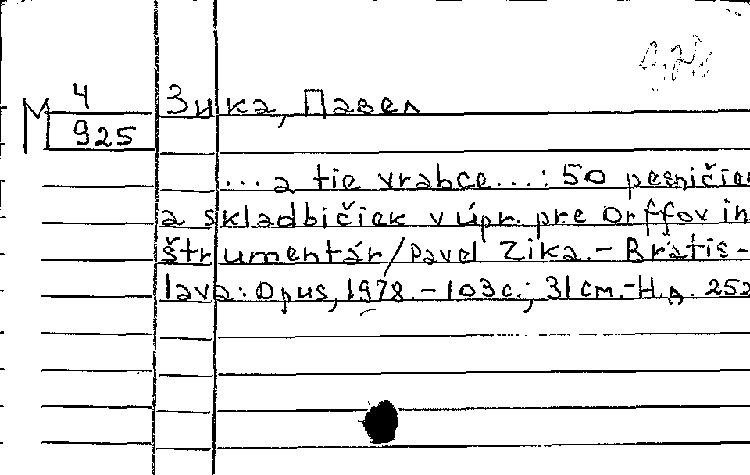 М 4
925
Зика, Павел
...a tie vrabce...: 50 pesničiek
a skladbičiek v úpr. pre Orffov in
štrumentár/Pavel Zika.- Bratis-
lava: Opus, 1978.-103с.; 31 см.-Н.д. 252